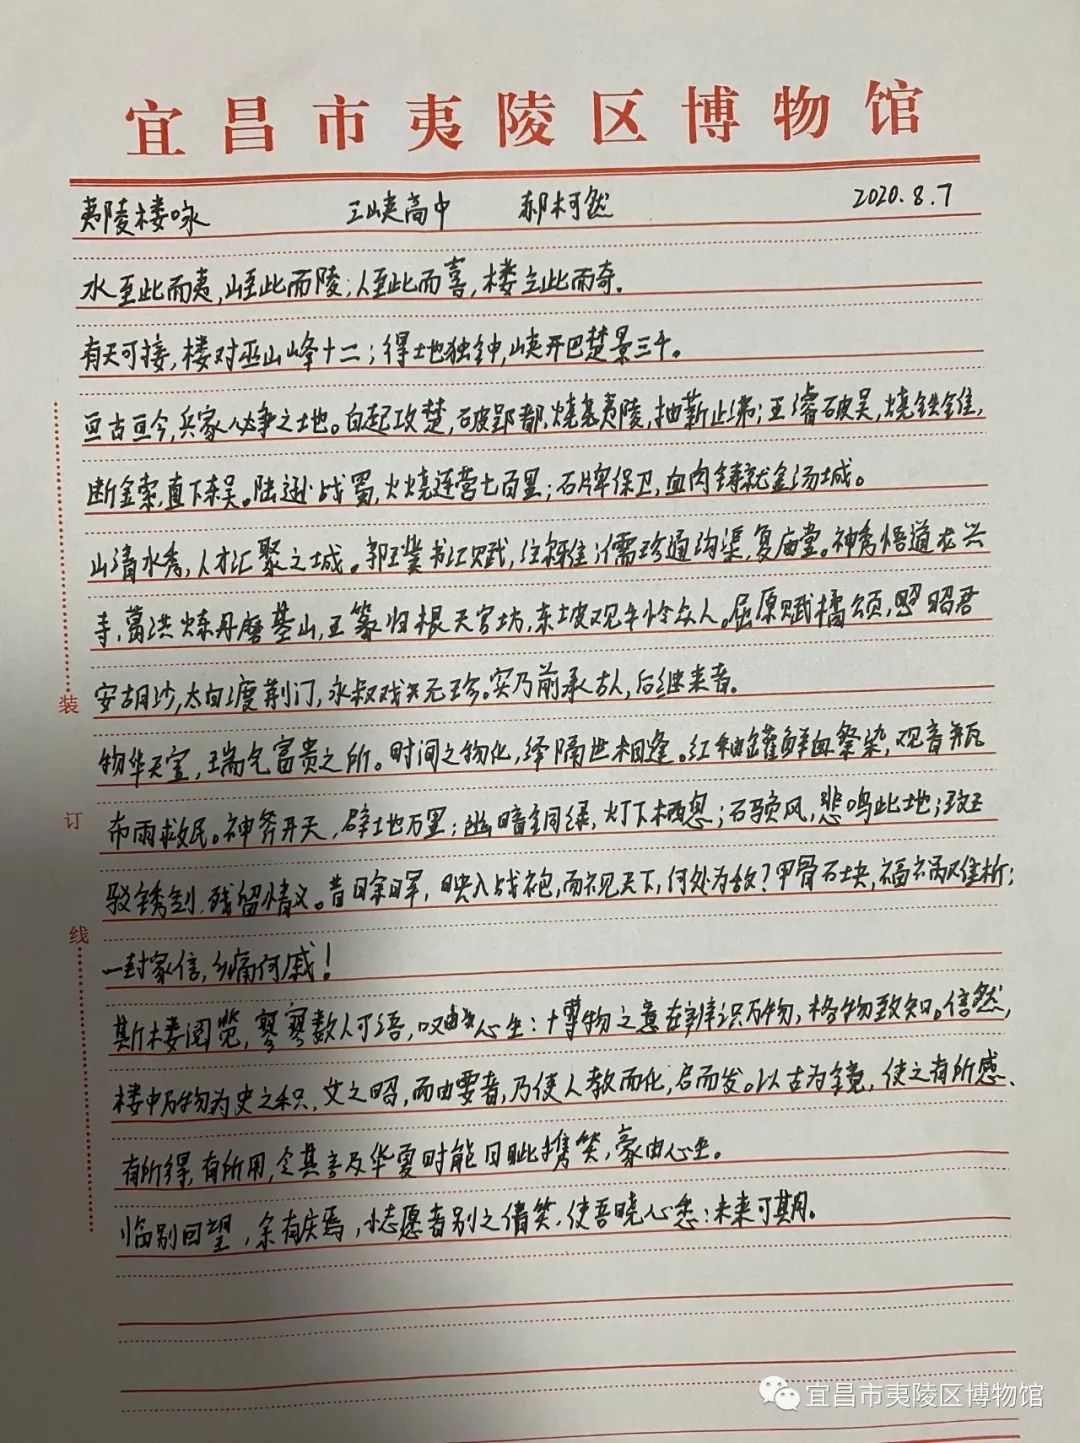 宜昌市夷陵区博物馆
夷陵楼咏 三峡高中 郝柯然 2020.8.7
水至此而夷,山至此而陵;人至此而喜,楼立此而奇。
有天可接,楼对巫山峰十二;得地独钟,峡开巴楚景三千。
亘古亘今,兵家必争之地。白起攻楚,破郢都,烧夷陵,抽薪止沸;王濬破吴,烧铁锥,
断金索,直下东吴。陆逊战蜀,火烧连营七百里;石牌保卫,血肉铸就金汤城。
山清水秀,人才汇聚之城。郭璞书江赋,注释雅;儒珍通沟渠,复庙堂。神秀悟道龙兴
寺,葛洪炼丹磨基山,王篆归根天官坊,东坡观牛怜众人。屈原赋橘颂,照昭君
安胡沙,太白渡荆门,永叔戏元珍。实乃前承古人,后继来者。
物华天宝,瑞气富贵之所。时间之物化,绎隔世相逢。红釉罐鲜血祭染,观音瓶
布雨救民。神斧开天,辟土地万里;幽暗铜绿,灯下栖息;石骏风,悲鸣此地;斑
驳锈剑,残留情义。昔日余晖,映入战袍,而祝天下,何处为敌?甲骨石块,福祸难析;
一封家信,乡痛何戚!
斯楼阅览,寥寥数人可语,叹由心生:博物之意在辨识万物,格物致知。信然,
楼中万物为史之积,文之昭,而由要者,乃使人教而化,启而发。以古为镜,使之有所感、
有所得,有所用,令其言及华夏时能目眦携笑,豪由心生。
临别回望,余有庆焉,小志愿者别之倩笑,使吾晓心悉:未来可期。
装
订
线
宜昌市夷陵区博物馆